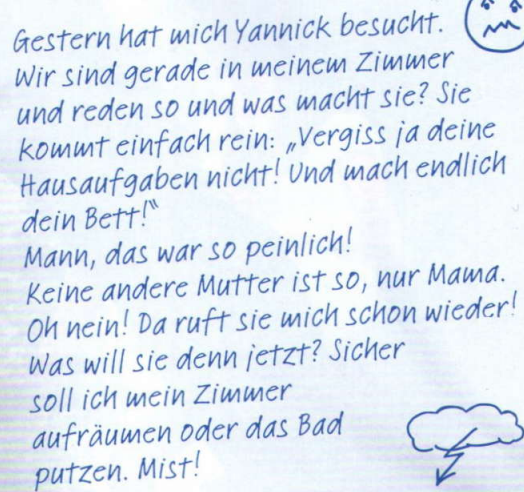 Gestern hat mich Yannick besucht.
Wir sind gerade in meinem Zimmer
und reden so und was macht sie? Sie
kommt einfach rein: „Vergiss ja deine
Hausaufgaben nicht! Und mach endlich
dein Bett!“
Mann, das war so peinlich!
Keine andere Mutter ist so, nur Mama.
Oh nein! Da ruft sie mich schon wieder!
Was will sie denn jetzt? Sicher
soll ich mein Zimmer
aufräumen oder das Bad
putzen. Mist!